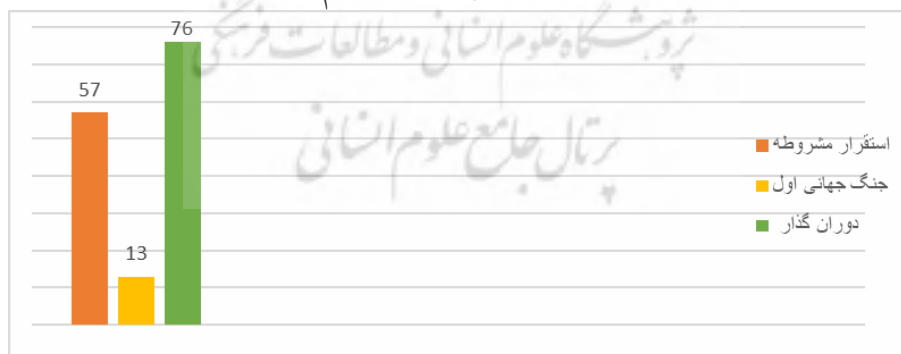 پژوهشگاه علوم انسانی و مطالعات فرهنگی
پرتال جامع علوم انسانی
76
57
13
استقرار مشروطه
جنگ جهانی اول
دوران گذار